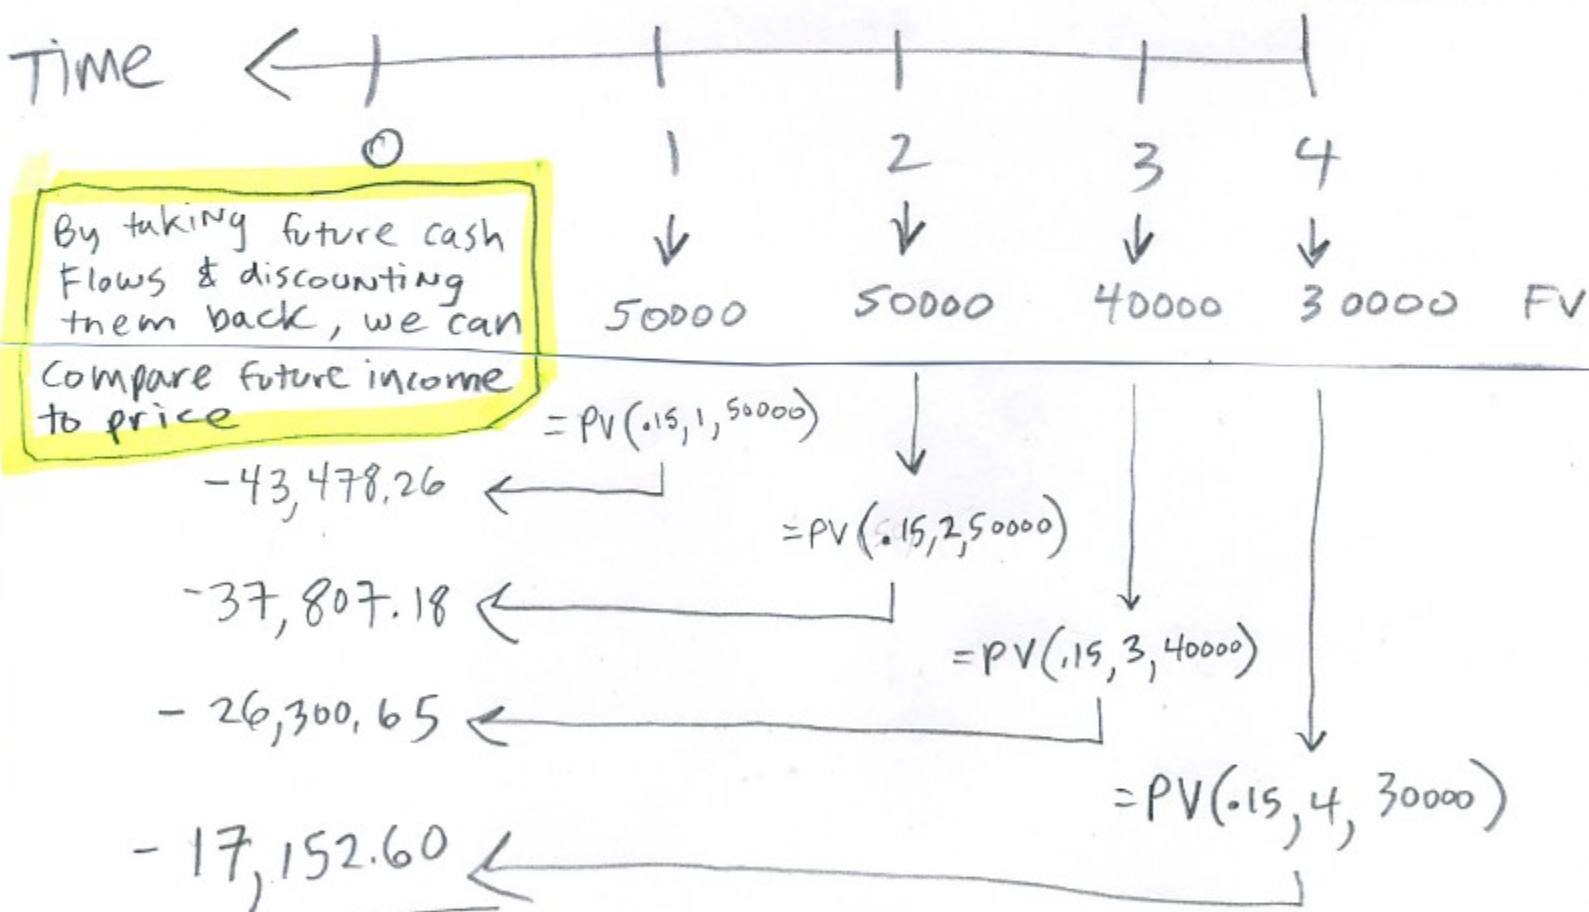 Time
0 1 2 3 4
By taking future cash
Flows & discounting
them back, we can
Compare future income
to price
50000 50000 40000 30000 FV
=PV(.15,1,50000)
-43,478.26
=PV(.15,2,50000)
-37,807.18
=PV(.15,3,40000)
- 26,300.65
=PV(.15,4,30000)
- 17,152.60